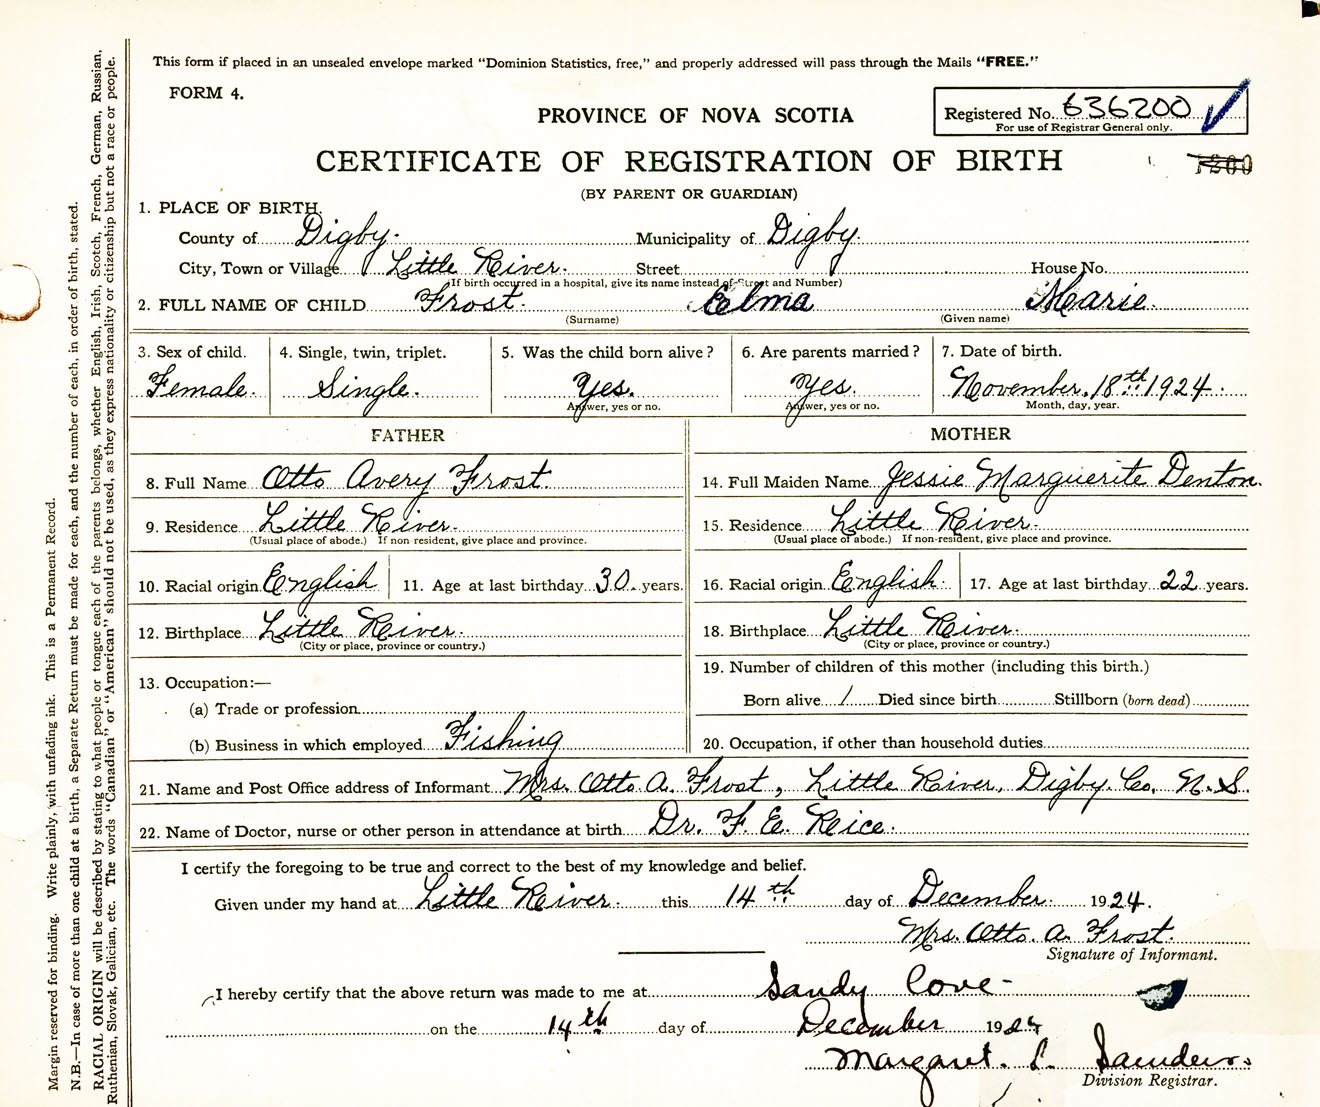 This form if placed in an unsealed envelope marked "Dominion Statistics, free," and properly addressed will pass through the Mails "FREE."
FORM 4.
Registered No. 636200
For use of Registrar General only.
PROVINCE OF NOVA SCOTIA
CERTIFICATE OF REGISTRATION OF BIRTH
(BY PARENT OR GUARDIAN)
1. PLACE OF BIRTH.
County of Digby. Municipality of Digby.
City, Town or Village Little River. Street House No.
(If birth occurred in a hospital, give its name instead of Street and Number)
2. FULL NAME OF CHILD Frost. Elma Marie.
(Surname) (Given name)
3. Sex of child. 4. Single, twin, triplet. 5. Was the child born alive? 6. Are parents married? 7. Date of birth.
Female. Single. Yes. Yes. November, 18th 1924.
Answer, yes or no. Answer, yes or no. Month, day, year.
FATHER MOTHER
8. Full Name Otto Avery Frost. 14. Full Maiden Name Jessie Marguerite Denton.
9. Residence Little River. 15. Residence Little River.
(Usual place of abode.) If non-resident, give place and province. (Usual place of abode.) If non-resident, give place and province.
10. Racial origin English 11. Age at last birthday 30 years. 16. Racial origin English. 17. Age at last birthday 22 years.
12. Birthplace Little River. 18. Birthplace Little River.
(City or place, province or country.) (City or place, province or country.)
13. Occupation:— 19. Number of children of this mother (including this birth.)
(a) Trade or profession Born alive 1 Died since birth Stillborn (born dead)
(b) Business in which employed Fishing 20. Occupation, if other than household duties
21. Name and Post Office address of Informant Mrs. Otto A. Frost, Little River, Digby. Co, N.S.
22. Name of Doctor, nurse or other person in attendance at birth Dr. F. E. Reice.
I certify the foregoing to be true and correct to the best of my knowledge and belief.
Given under my hand at Little River. this 14th day of December. 1924.
Mrs. Otto. A. Frost.
Signature of Informant.
I hereby certify that the above return was made to me at Sandy Cove-
on the 14th day of December 1924
Margaret. L. Saunders.
Division Registrar.
Margin reserved for binding. Write plainly, with unfading ink. This is a Permanent Record.
N.B.—In case of more than one child at a birth, a Separate Return must be made for each, and the number of each, in order of birth, stated.
RACIAL ORIGIN will be described by stating to what people or tongue each of the parents belongs, whether English, Irish, Scotch, French, German, Russian,
Ruthenian, Slovak, Galician, etc. The words "Canadian" or "American" should not be used, as they express nationality or citizenship but not a race or people.